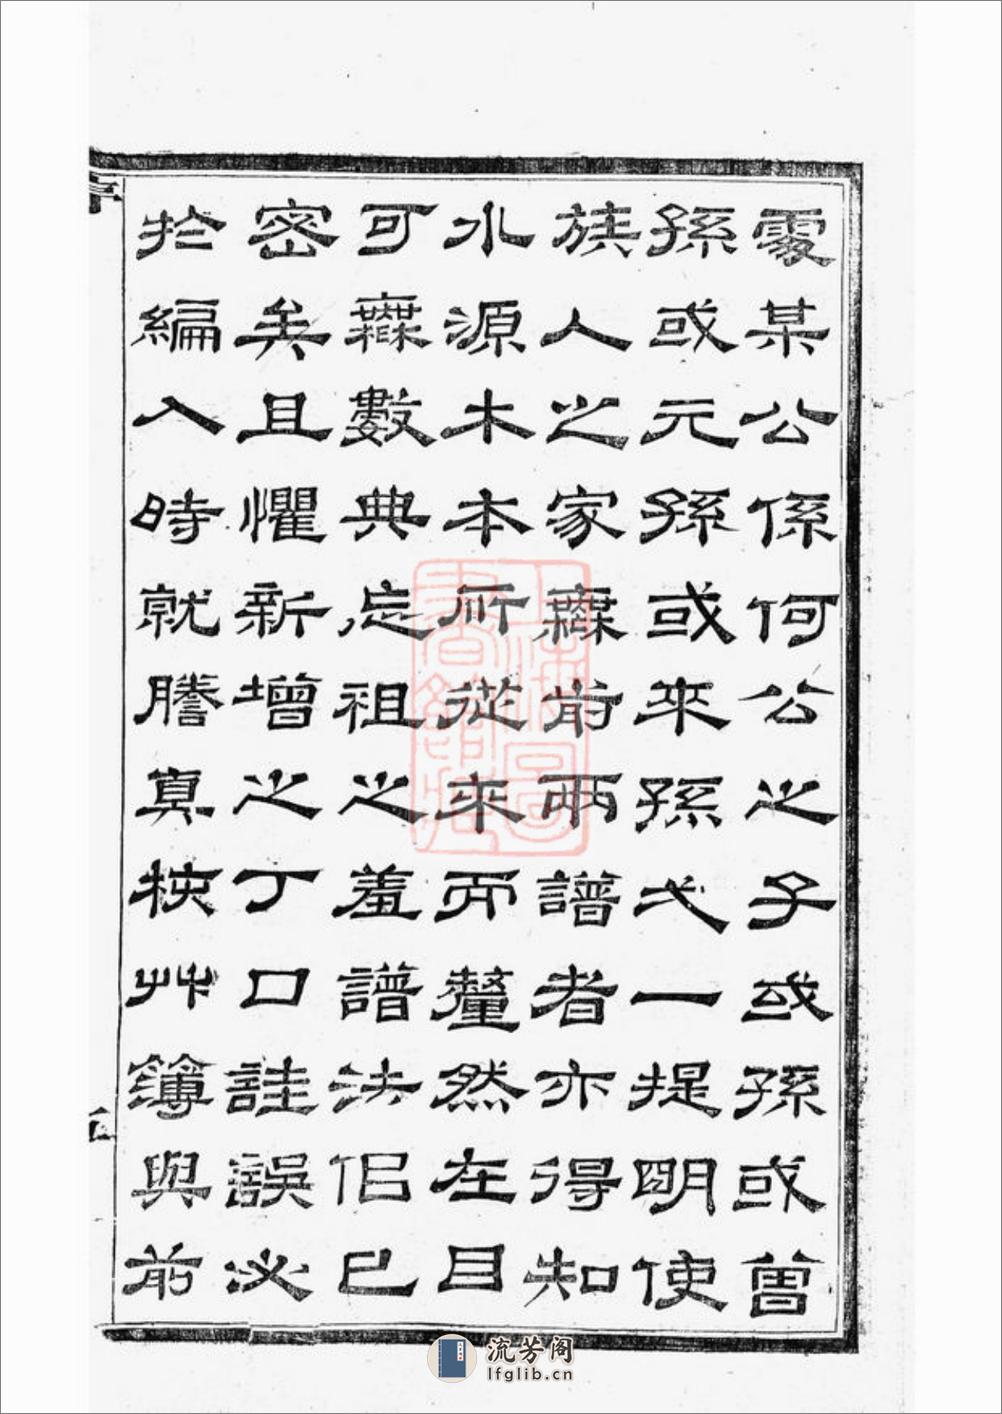 處某公係何公之子或孫或曾
孫或元孫或來孫弌一提明使
族人之家無前兩譜者亦得知
水源木本所從來而釐然在目
可無數典忘祖之羞譜法佀已
密矣且懼新增之丁口註誤必
於編入時就謄真挍艸簿與前
上海圖書館藏
流芳阁
lfglib.cn